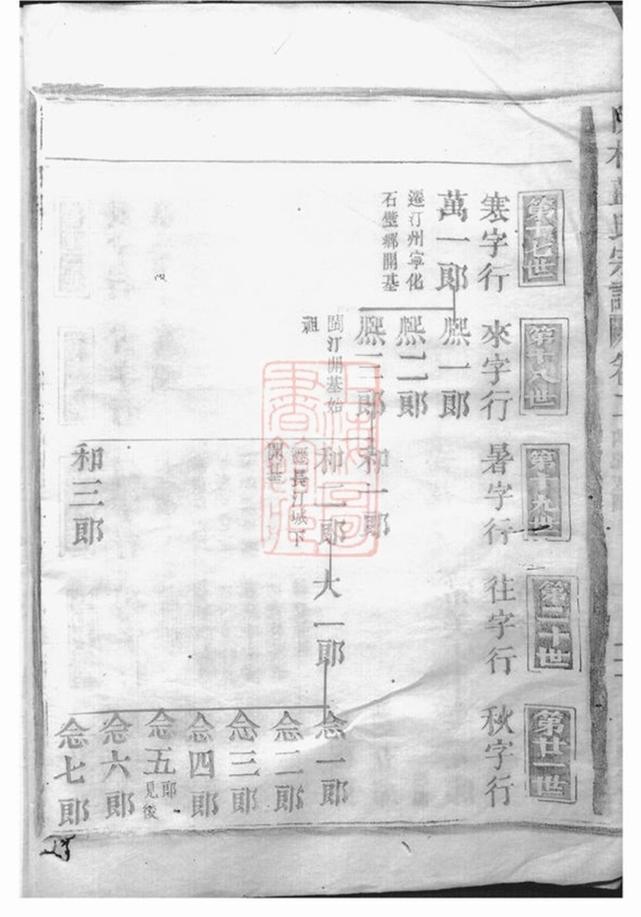 第十七世
寒字行
萬一郎
遷汀州寧化
石壁鄉開基
第十八世
來字行
熈一郎
熈二郎
熈三郎
閩汀開基始
祖
第十九世
暑字行
和一郎
和二郎
遷長汀城下
開基
和三郎
第二十世
往字行
大一郎
第廿一世
秋字行
念一郎
念二郎
念三郎
念四郎
念五郎
見後
念六郎
念七郎